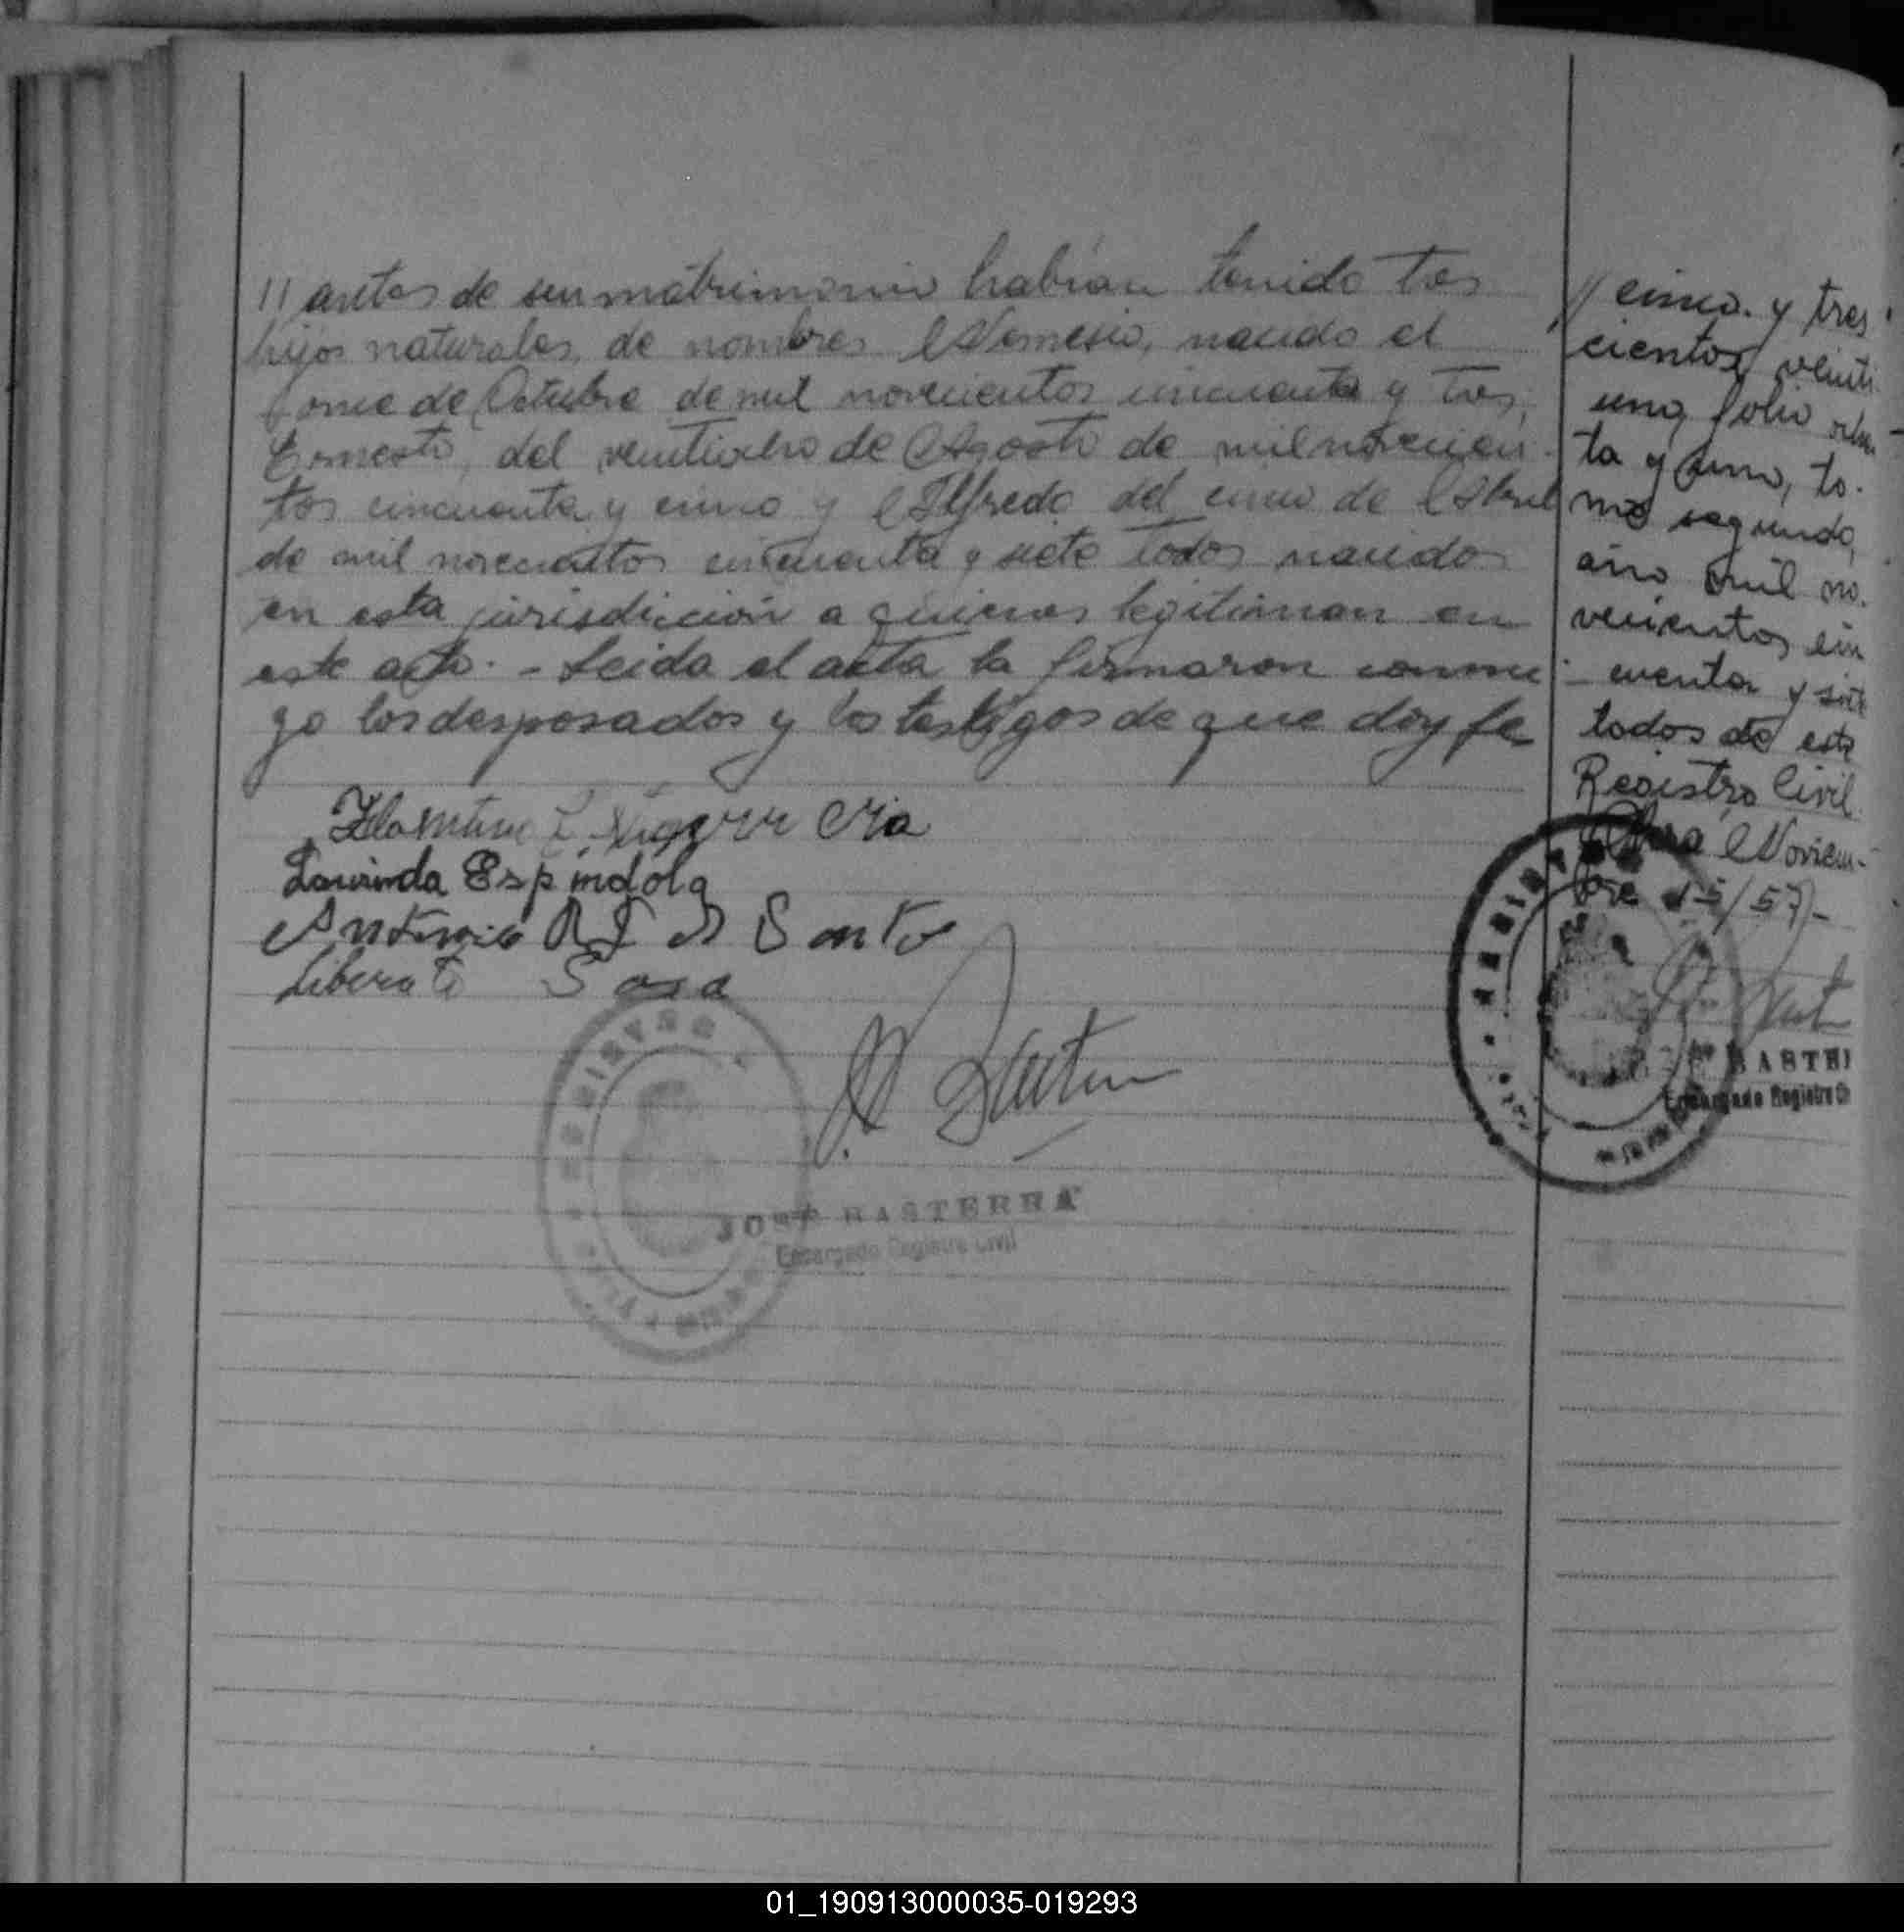 // antes de su matrimonio habían tenido tres
hijos naturales, de nombres Nemesio, nacido el
once de Octubre de mil novecientos cincuenta y tres,
Ernesto, del veintiocho de Agosto de mil novecien-
tos cincuenta y cinco y Alfredo del cinco de Abril
de mil novecientos cincuenta y siete todos nacidos
en esta jurisdicción a quienes legitiman en
este acto. - Leida el acta la firmaron conmi-
go los desposados y los testigos de que doy fe
Laurinda Espindola
Antonio Santo
Liberato Sosa
JOSE BASTERRA
Encargado Registro Civil
// cinco. y tres
cientos veinti
uno, folio ochen-
ta y uno, to-
mo segundo,
año mil no-
vecientos cin
cuenta y siete
todos de este
Registro Civil.
Noviem-
bre 15/57-
BASTER
Encargado Registro Ci
01_190913000035-019293